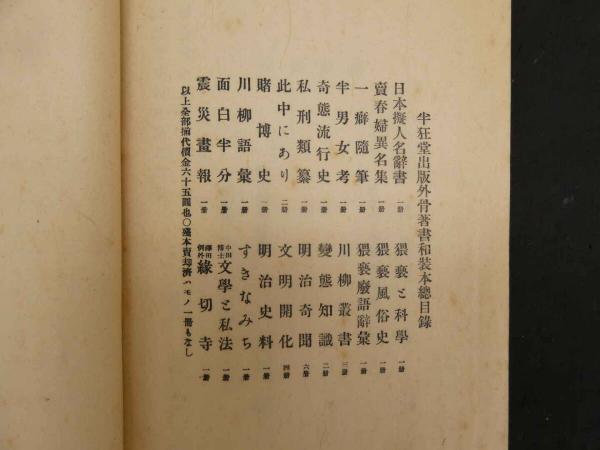 半狂堂出版外骨著書和装本總目錄
日本擬人名辭書 一册 猥褻と科學 一册
賣春婦異名集 一册 猥褻風俗史 一册
一癖隨筆 一册 猥褻廢語辭彙 一册
半男女考 一册 川柳叢書 三册
奇態流行史 一册 變態知識 二册
私刑類纂 一册 明治奇聞 六册
此中にあり 二册 文明開化 四册
賭博史 一册 明治史料 一册
川柳語彙 一册 すきなみち 一册
面白半分 一册 中田博士 文學と私法 一册
震災畫報 一册 穗田例外 緣切寺 一册
以上全部揃代價金六十五圓也〇殘本賣却濟ハモノ一册もなし